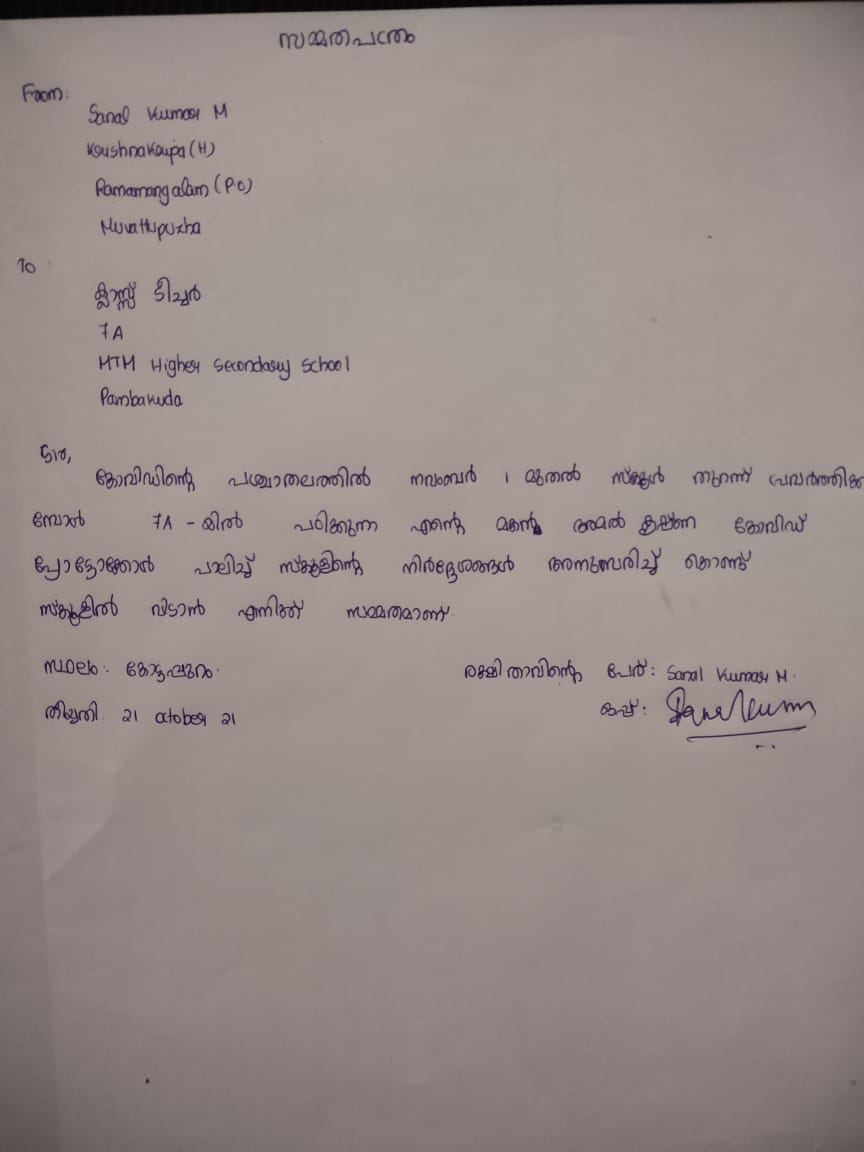 സമ്മതപത്രം
From:
Sanal Kumar M
Krushnakrupa (H)
Ramamangalam (P.O)
Muvattupuzha
To :
ക്ലാസ്സ് ടീച്ചർ
7A
MTM Higher Secondary School
Pambakuda
Sir,
കോവിഡിന്റെ പശ്ചാതലത്തിൽ നവംബർ 1 മുതൽ സ്ക്കൂൾ തുറന്ന് പ്രവർത്തിക്കു
മ്പോൾ 7A - യിൽ പഠിക്കുന്ന എന്റെ മകൻ അമൽ കൃഷ്ണ കോവിഡ്
പ്രോട്ടോക്കോൾ പാലിച്ച് സ്ക്കൂളിന്റെ നിർദ്ദേശങ്ങൾ അനുസരിച്ച് കൊണ്ട്
സ്ക്കൂളിൽ വിടാൻ എനിക്ക് സമ്മതമാണ്.
സ്ഥലം: കോട്ടപ്പുറം. രക്ഷിതാവിന്റെ പേര്: Sanal Kumar M.
തീയ്യതി: 21 october 21 ഒപ്പ്: